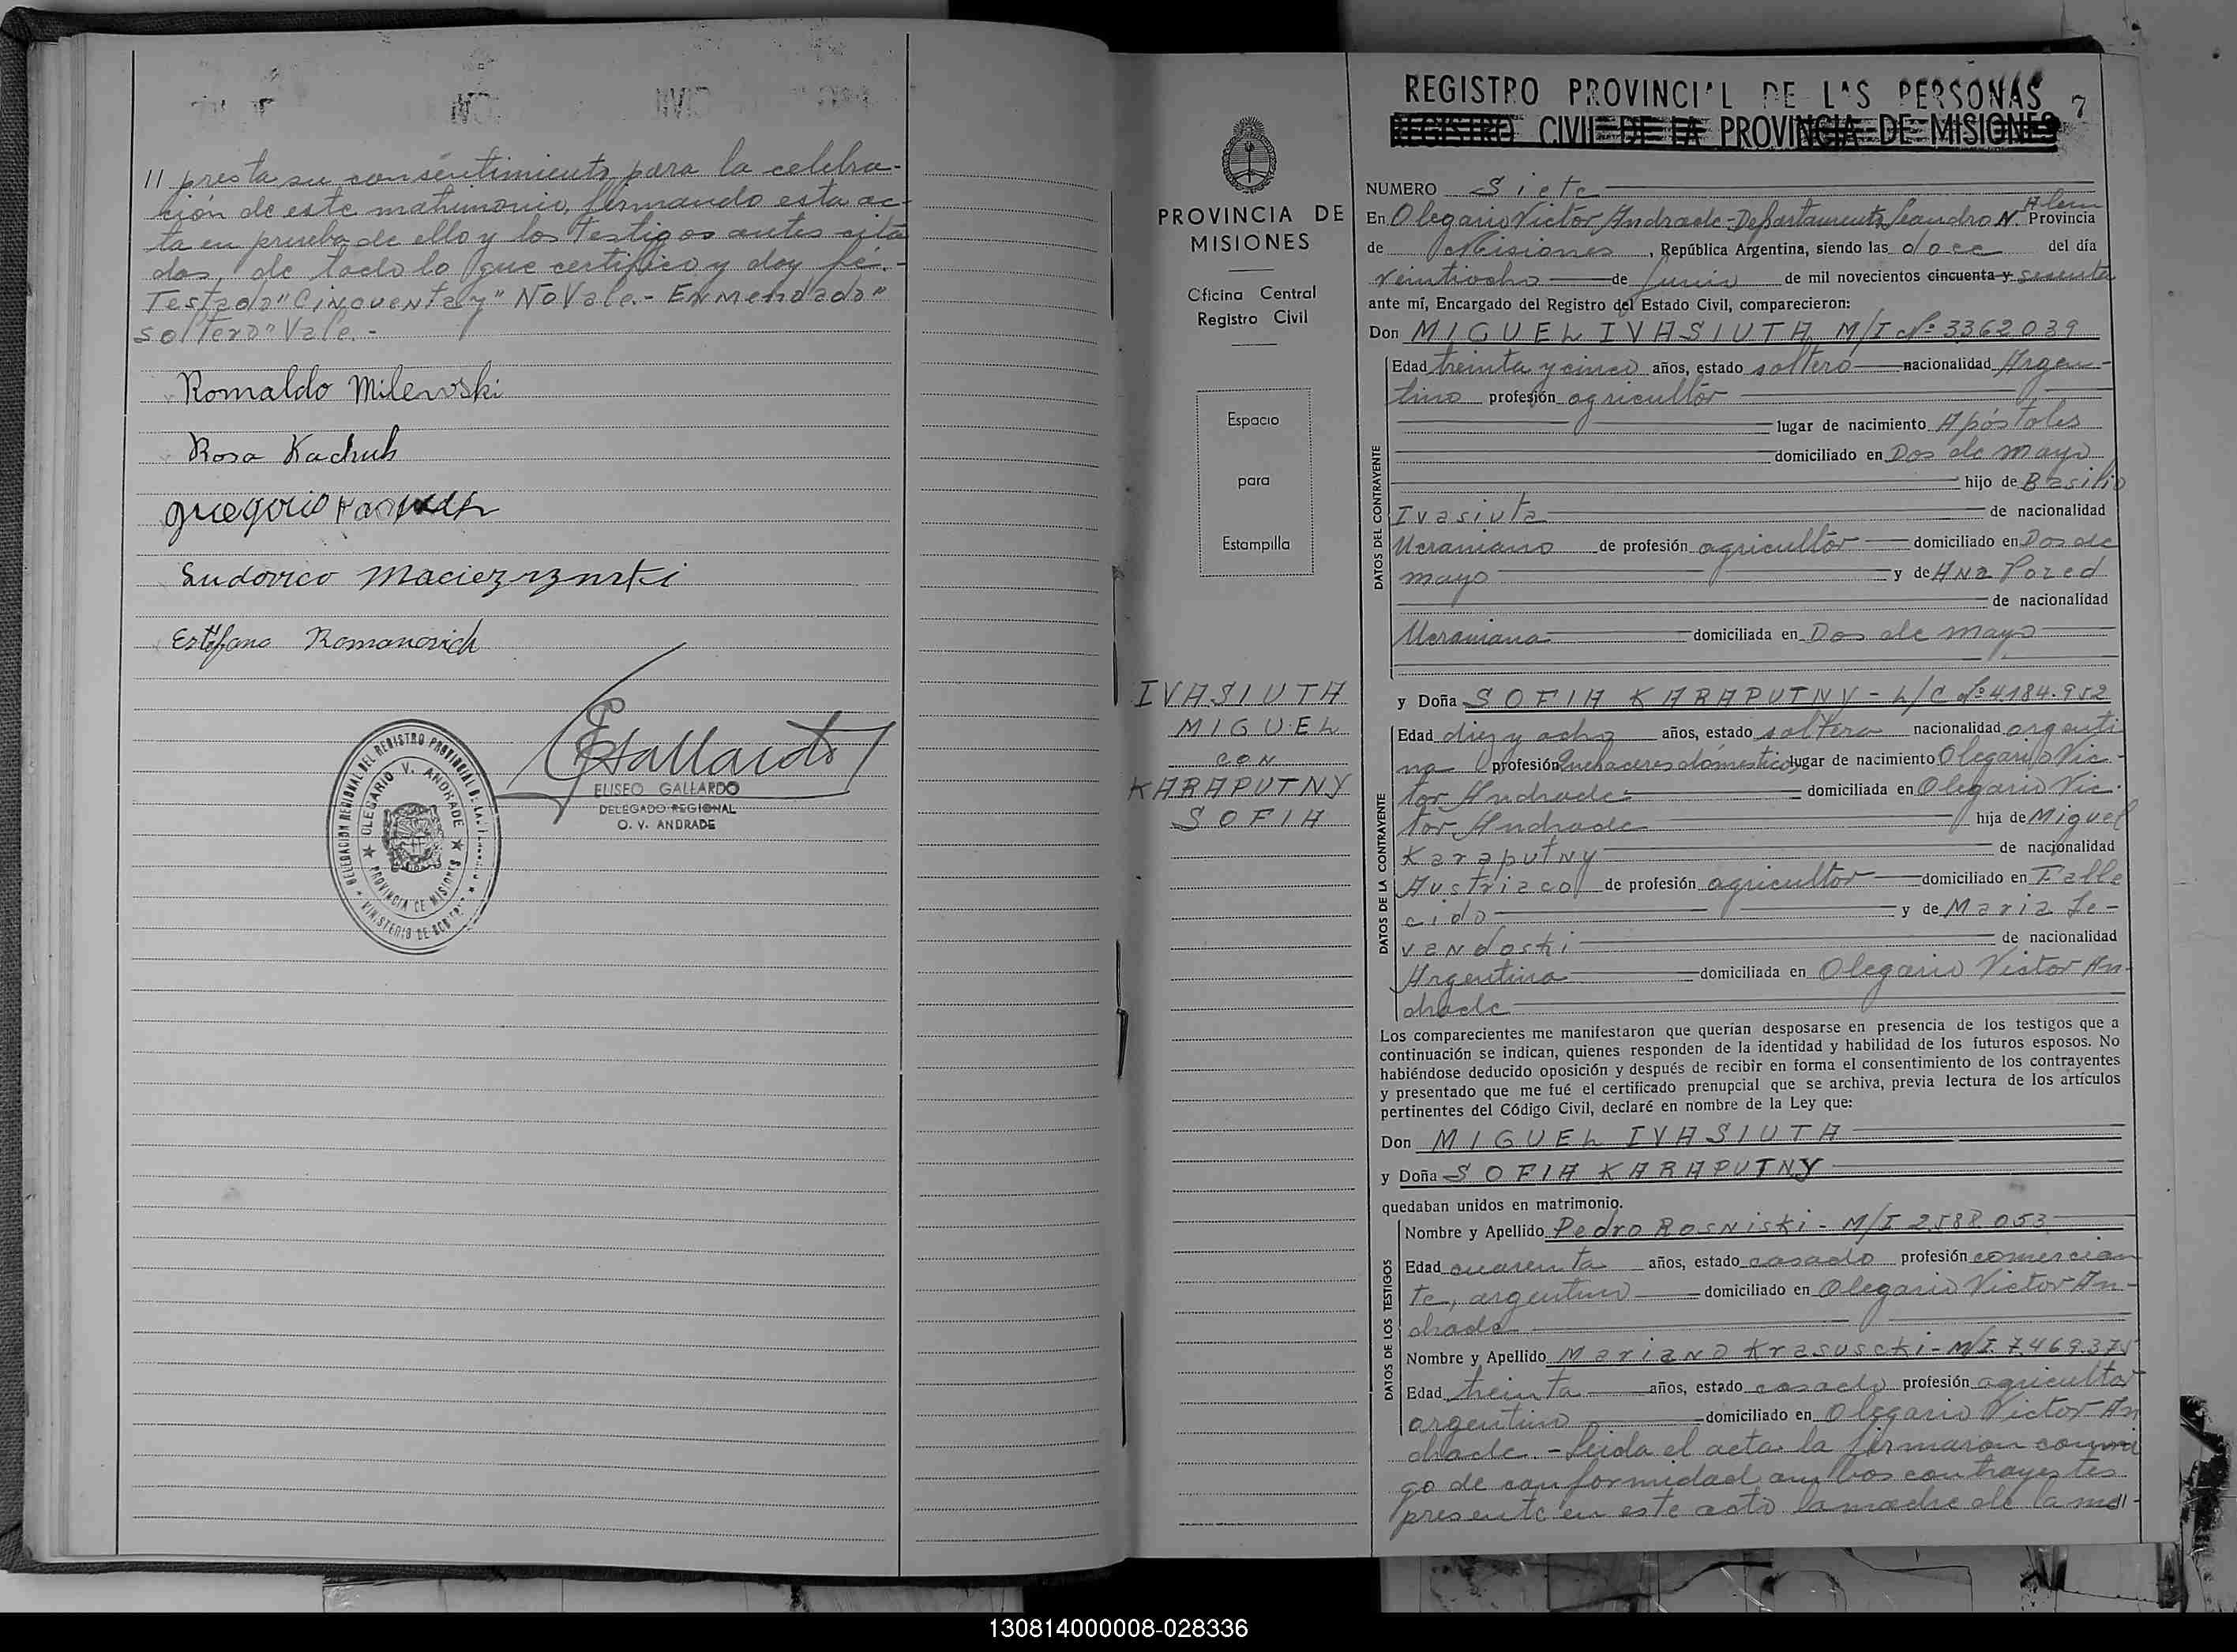 // presta su consentimiento para la celebra-
ción de este matrimonio, firmando esta ac-
ta en prueba de ello y los testigos antes cita
dos, de todo lo que certifico y doy fé.-
Testado "Cincuenta y" No Vale.- Enmendado "
soltero" Vale.-
Romaldo Milewski
Rosa Kachuk
Gregorio
Ludovico
Estéfano Romanovich
EGallardo
ELISEO GALLARDO
DELEGADO REGIONAL
O. V. ANDRADE
DELEGACION REGIONAL DEL REGISTRO PROVINCIAL DE LAS
MINISTERIO DE
OLEGARIO V. ANDRADE
PROVINCIA DE MISIONES
PROVINCIA DE
MISIONES
Oficina Central
Registro Civil
Espacio
para
Estampilla
IVASIUTA
MIGUEL
CON
KARAPUTNY
SOFIA
REGISTRO PROVINCIAL DE LAS PERSONAS 7
REGISTRO CIVIL DE LA PROVINCIA DE MISIONES
NUMERO Siete
En Olegario Victor Andrade-Departamento Leandro N. Alem Provincia
de Misiones, República Argentina, siendo las doce del día
veintiocho de Junio de mil novecientos cincuenta y sesenta
ante mí, Encargado del Registro del Estado Civil, comparecieron:
Don MIGUEL IVASIUTA M/I Nº 3362039
DATOS DEL CONTRAYENTE
Edad treinta y cinco años, estado soltero nacionalidad Argen-
tino profesión agricultor
lugar de nacimiento Apóstoles
domiciliado en Dos de mayo
hijo de Basilio
Ivasiuta de nacionalidad
Ucraniano de profesión agricultor domiciliado en Dos de
mayo y de Ana Pored
de nacionalidad
Ucraniana domiciliada en Dos de mayo
y Doña SOFIA KARAPUTNY - L/C Nº 4.184.952
DATOS DE LA CONTRAYENTE
Edad diez y ocho años, estado soltera nacionalidad argenti
na profesión Quehaceres domésticos lugar de nacimiento Olegario Vic-
tor Andrade domiciliada en Olegario Vic-
tor Andrade hija de Miguel
Karaputny de nacionalidad
Austriaco de profesión agricultor domiciliado en Falle
cido y de Maria Le-
vandoski de nacionalidad
Argentina domiciliada en Olegario Victor An-
drade
Los comparecientes me manifestaron que querían desposarse en presencia de los testigos que a
continuación se indican, quienes responden de la identidad y habilidad de los futuros esposos. No
habiéndose deducido oposición y después de recibir en forma el consentimiento de los contrayentes
y presentado que me fué el certificado prenupcial que se archiva, previa lectura de los artículos
pertinentes del Código Civil, declaré en nombre de la Ley que:
Don MIGUEL IVASIUTA
y Doña SOFIA KARAPUTNY
quedaban unidos en matrimonio.
DATOS DE LOS TESTIGOS
Nombre y Apellido Pedro Rosniski - M/I 2588053
Edad cuarenta años, estado casado profesión comercian
te, argentino domiciliado en Olegario Victor An-
drade
Nombre y Apellido Mariano Krasuscki - M/I 7.469.375
Edad treinta años, estado casado profesión agricultor
argentino domiciliado en Olegario Victor An
drade.- Leida el acta la firmaron conmi
go de conformidad ambos contrayentes
presente en este acto la madre de la me//-
130814000008-028336